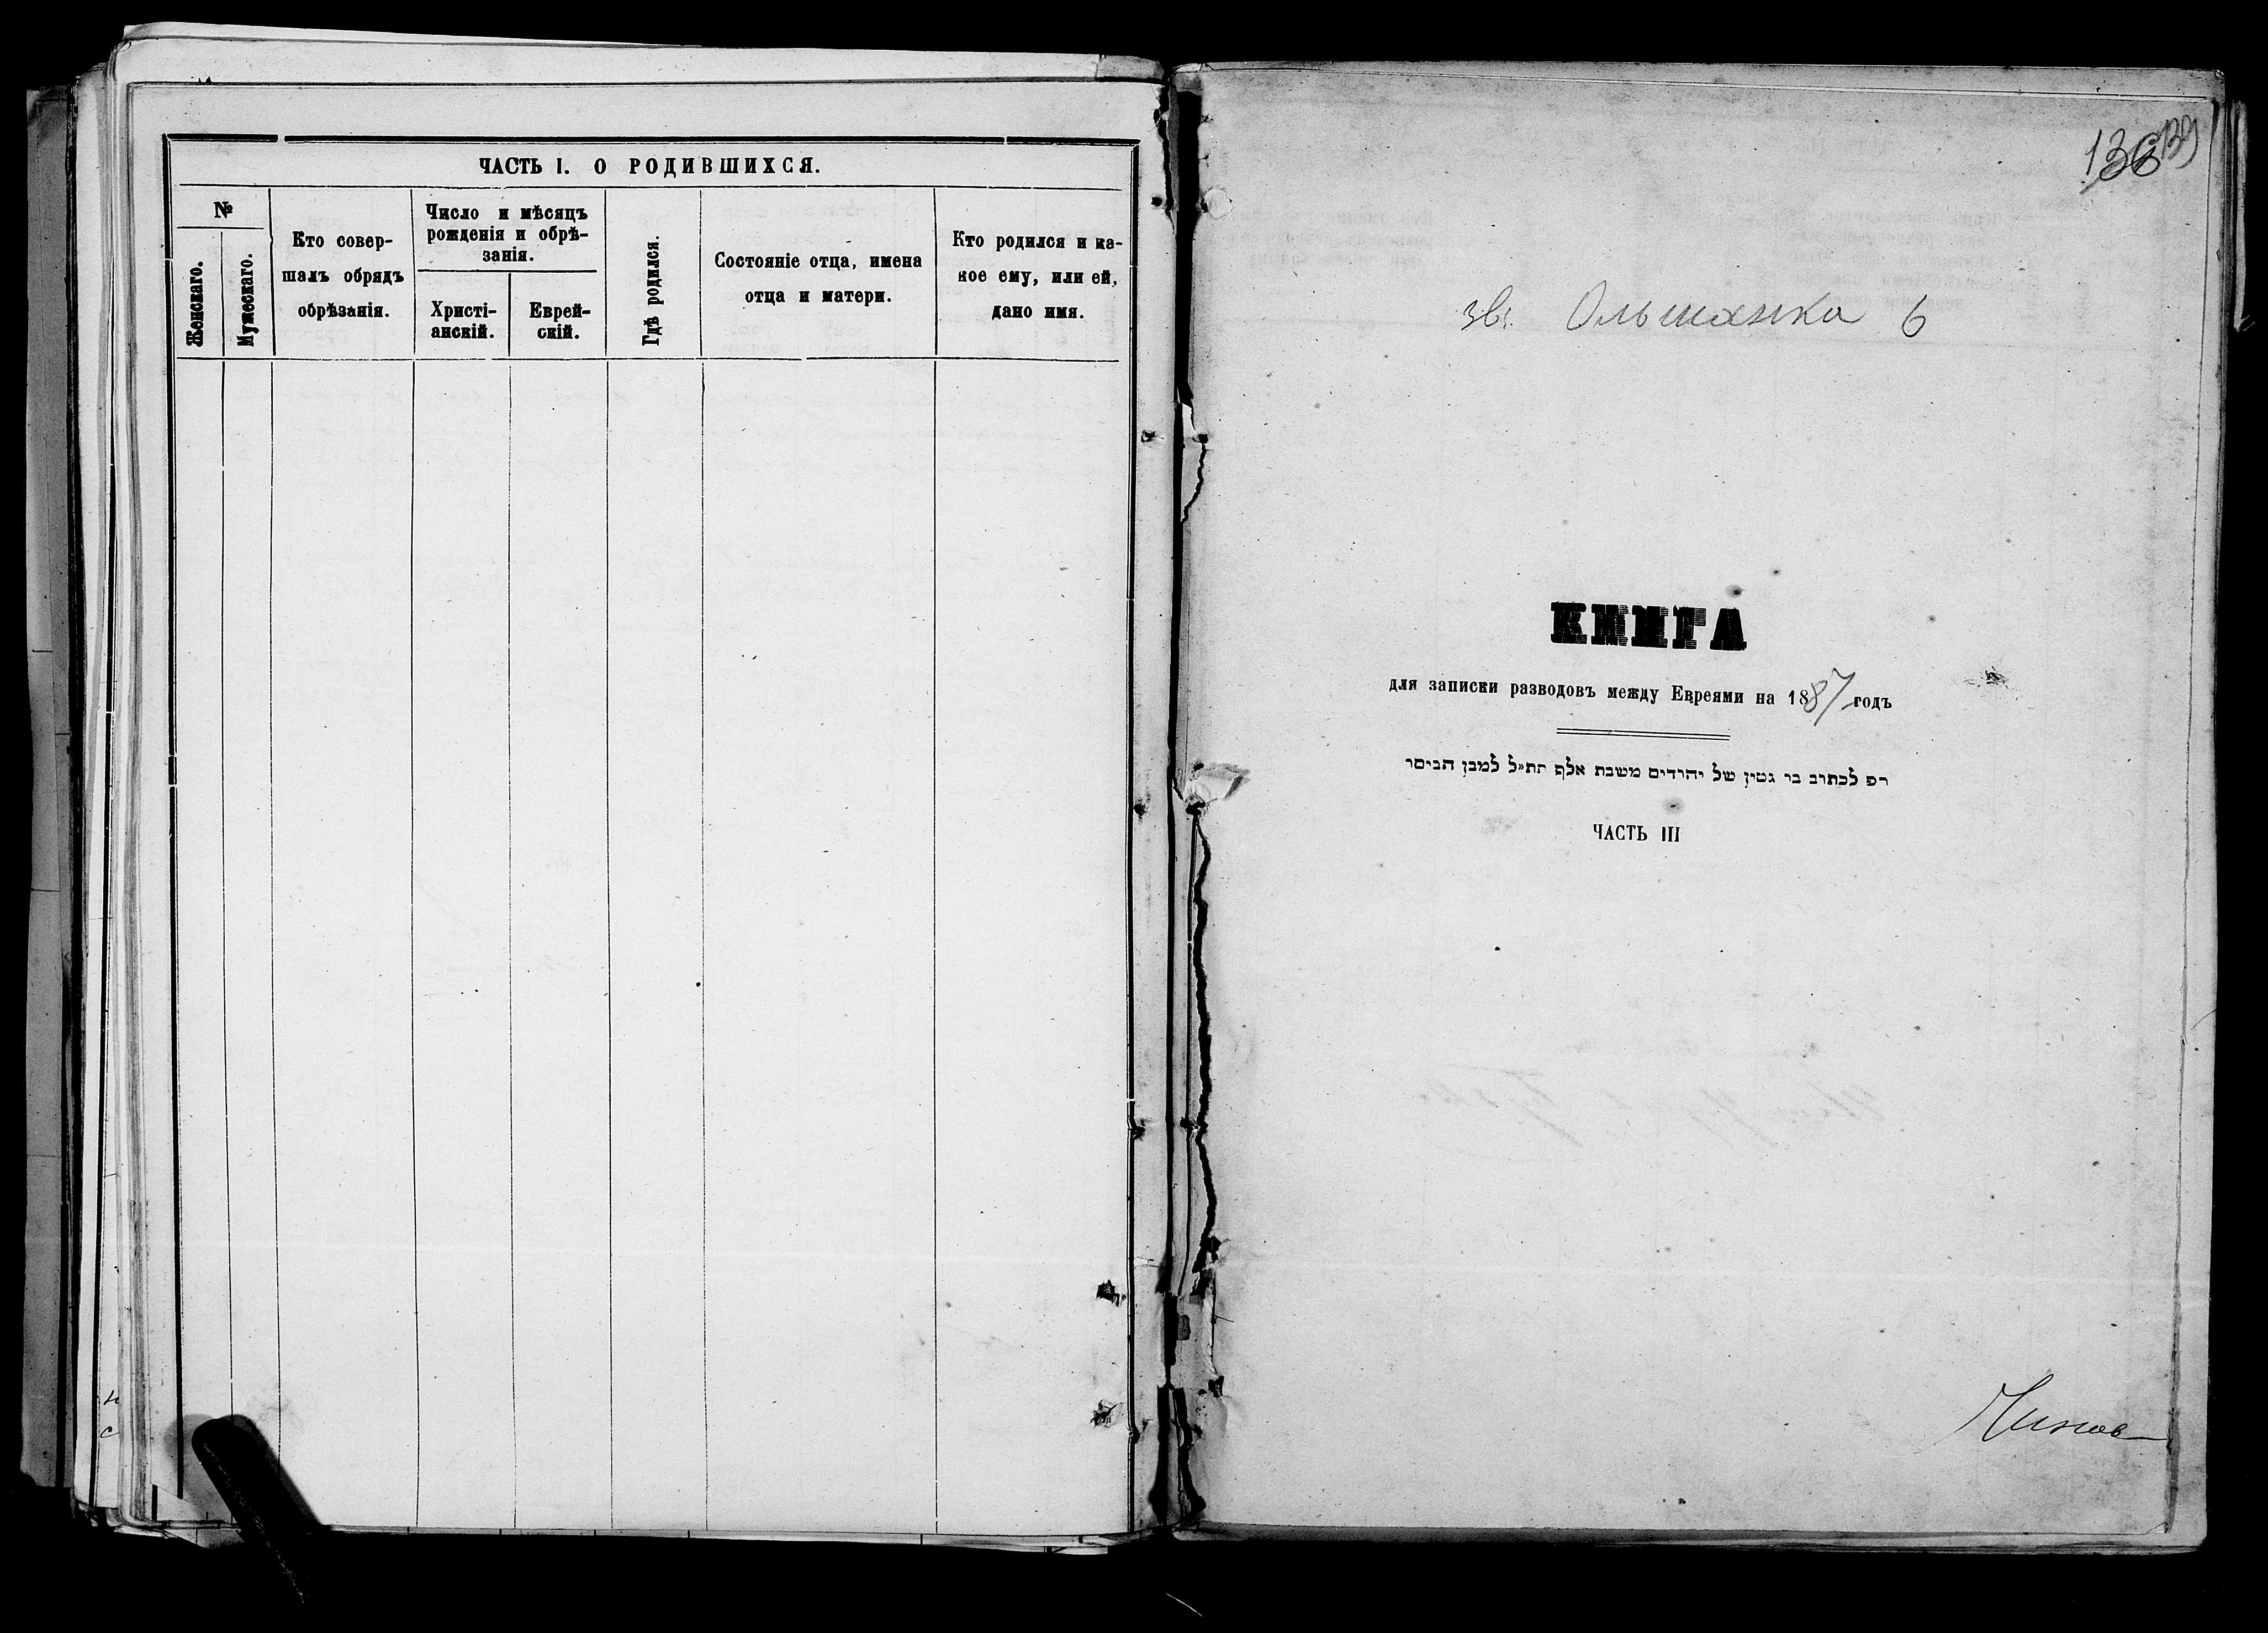 ЧАСТЬ I. О РОДИВШИХСЯ.
№
Женскаго.
Мужескаго.
Кто совер-
шалъ обрядъ
обрѣзанія.
Число и мѣсяцъ
рожденія и обрѣ-
занія.
Христі-
анскій.
Еврей-
скій.
Гдѣ родился.
Состояніе отца, имена
отца и матери.
Кто родился и ка-
кое ему, или ей,
дано имя.
136 139
зв. Ольшанка 6
КНИГА
для записки разводовъ между Евреями на 1887 годъ
לכתוב בו גטין של יהודים משנת אלף תת״ל למבן
ЧАСТЬ III